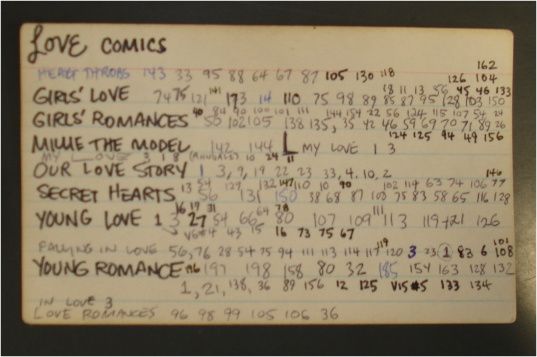 LOVE COMICS
162
HEART THROBS 143 33 95 88 64 67 87 105 130 118 126 104
GIRLS' LOVE 74 75 121 141 173 14 110 75 98 89 85 87 95 128 103 150
68 11 13 56 45 46 133
GIRLS' ROMANCES 50 102 105 138 135, 35 42 46 59 69 70 71 89 26
40 80 90 100 101 111 144 154 22 56 124 115 107 54 24
MILLIE THE MODEL 142 144 L MY LOVE 1 3
124 125 94 49 156
MY LOVE 3 1 8 (ANNUALS) 10 24 11
OUR LOVE STORY 1 3, 9, 19 22 23 33, 4, 10, 2
146
SECRET HEARTS 56 131 150 38 68 87 103 75 83 58 65 116 128
13 54 127 132 147 110 10 90 102 114 63 74 106 77
16 19 31
YOUNG LOVE 1 3 27 54 66 80 107 109 111 113 119 121 126
69 78
VG#4 43 75 16 73 75 67
FALLING IN LOVE 56, 76 28 54 75 94 111 113 114 117 120 3 23 1 83 6 108
119 101
YOUNG ROMANCE 126 197 198 158 80 32 185 154 163 128 132
1, 21, 138, 36 89 156 12 125 V15#5 133 134
IN LOVE 3
LOVE ROMANCES 96 98 99 105 106 36